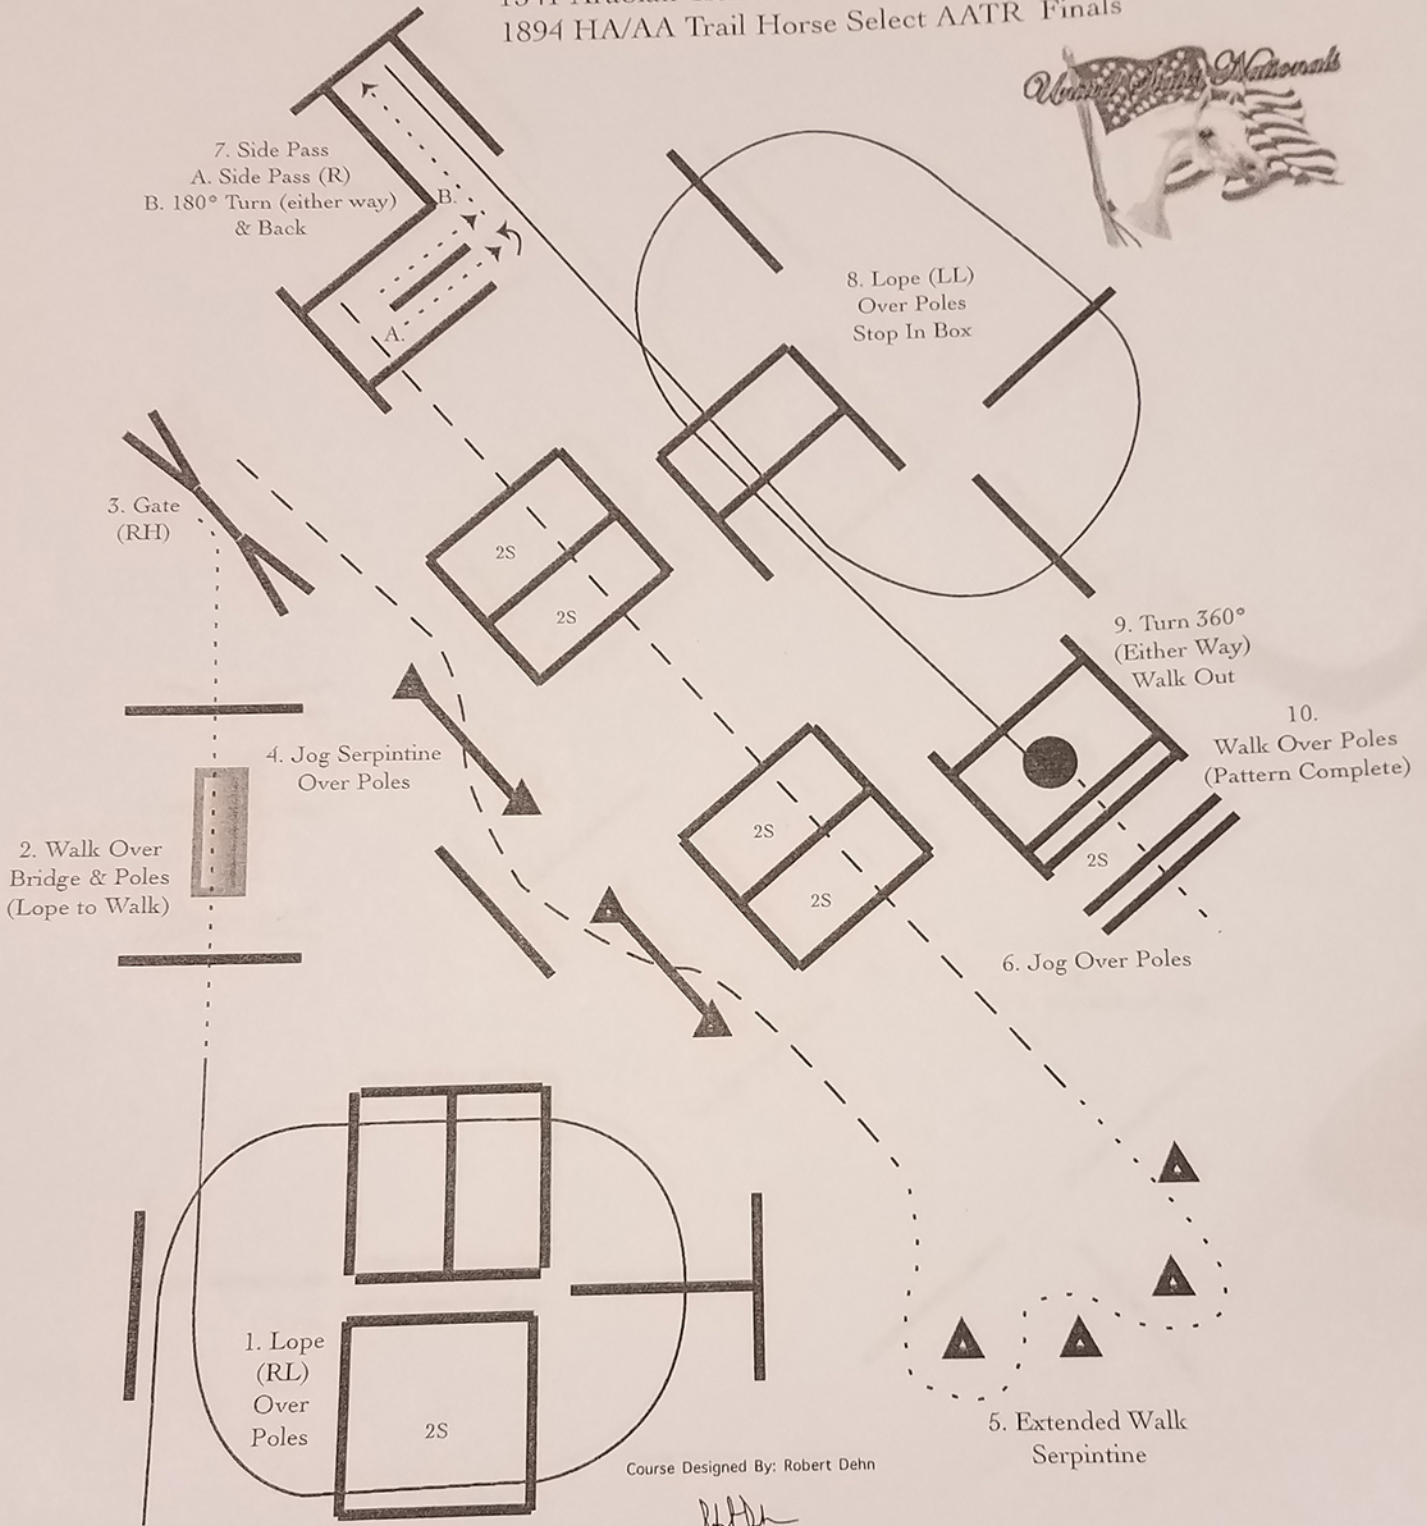 1894 HA/AA Trail Horse Select AATR Finals
United States Nationals
7. Side Pass
A. Side Pass (R)
B. 180° Turn (either way)
& Back
B.
A.
8. Lope (LL)
Over Poles
Stop In Box
3. Gate
(RH)
2S
2S
9. Turn 360°
(Either Way)
Walk Out
10.
Walk Over Poles
(Pattern Complete)
4. Jog Serpintine
Over Poles
2. Walk Over
Bridge & Poles
(Lope to Walk)
2S
2S
2S
6. Jog Over Poles
1. Lope
(RL)
Over
Poles
2S
5. Extended Walk
Serpintine
Course Designed By: Robert Dehn